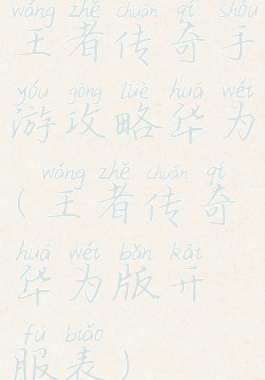 wáng zhě chuán qí shǒu
王者传奇手
yóu gōng lüè huá wéi
游攻略华为
wáng zhě chuán qí
（王者传奇
huá wéi bǎn kāi
华为版开
fú biǎo
服表）